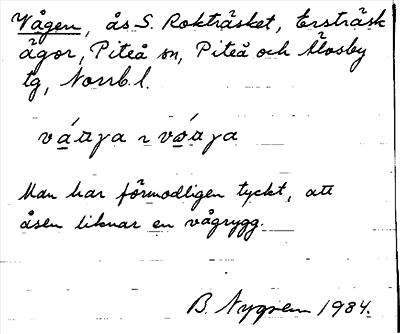 Vågen, ås S. Rokträsket, Ersträsk
ägor, Piteå sn, Piteå och Älvsby
tg, Norrb. l.
Man har förmodligen tyckt, att
åsen liknar en vågrygg.
B. Nygren 1984.